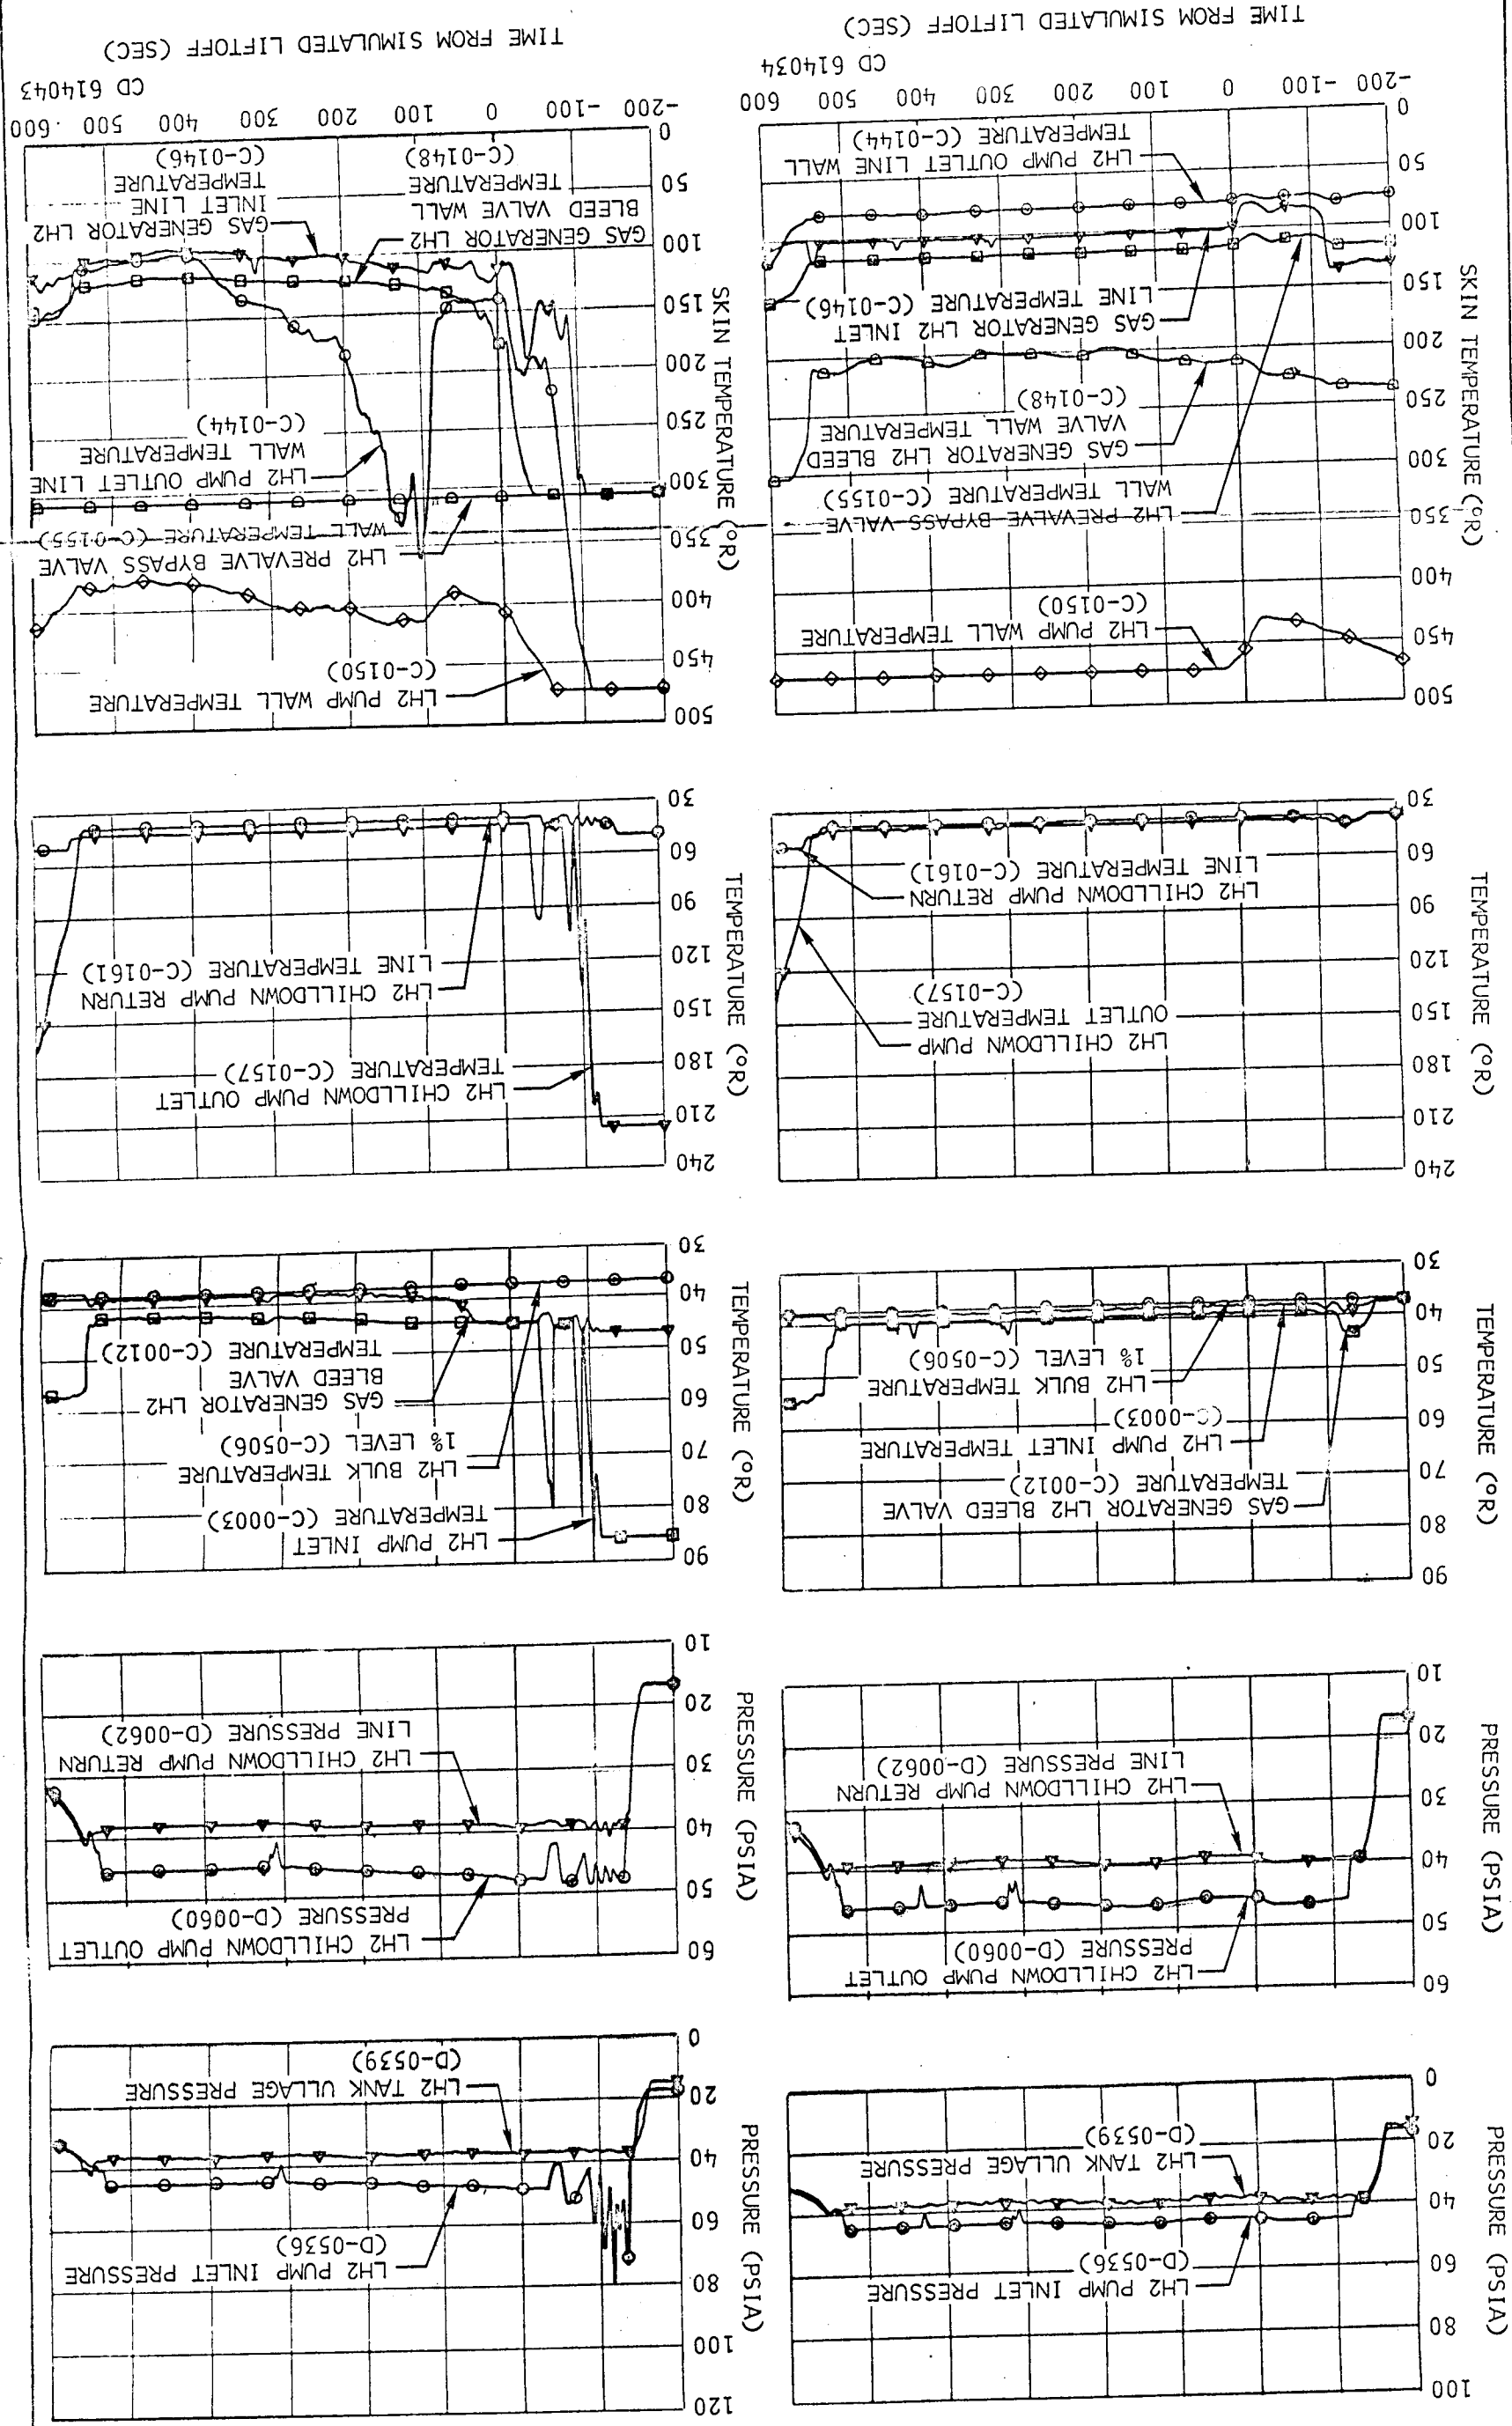 PRESSURE (PSIA)
100
80
60
40
20
0
LH2 PUMP INLET PRESSURE
(D-0536)
LH2 TANK ULLAGE PRESSURE
(D-0539)
PRESSURE (PSIA)
60
50
40
30
20
10
LH2 CHILLDOWN PUMP OUTLET
PRESSURE (D-0060)
LH2 CHILLDOWN PUMP RETURN
LINE PRESSURE (D-0062)
TEMPERATURE (°R)
90
80
70
60
50
40
30
GAS GENERATOR LH2 BLEED VALVE
TEMPERATURE (C-0012)
LH2 PUMP INLET TEMPERATURE
(C-0003)
LH2 BULK TEMPERATURE
1% LEVEL (C-0506)
TEMPERATURE (°R)
240
210
180
150
120
90
60
30
LH2 CHILLDOWN PUMP
OUTLET TEMPERATURE
(C-0157)
LH2 CHILLDOWN PUMP RETURN
LINE TEMPERATURE (C-0161)
SKIN TEMPERATURE (°R)
500
450
400
350
300
250
200
150
100
50
0
LH2 PUMP WALL TEMPERATURE
(C-0150)
LH2 PREVALVE BYPASS VALVE
WALL TEMPERATURE (C-0155)
GAS GENERATOR LH2 BLEED
VALVE WALL TEMPERATURE
(C-0148)
GAS GENERATOR LH2 INLET
LINE TEMPERATURE (C-0146)
LH2 PUMP OUTLET LINE WALL
TEMPERATURE (C-0144)
-200 -100 0 100 200 300 400 500 600
CD 614034
TIME FROM SIMULATED LIFTOFF (SEC)
PRESSURE (PSIA)
120
100
80
60
40
20
0
LH2 PUMP INLET PRESSURE
(D-0536)
LH2 TANK ULLAGE PRESSURE
(D-0539)
PRESSURE (PSIA)
60
50
40
30
20
10
LH2 CHILLDOWN PUMP OUTLET
PRESSURE (D-0060)
LH2 CHILLDOWN PUMP RETURN
LINE PRESSURE (D-0062)
TEMPERATURE (°R)
90
80
70
60
50
40
30
LH2 PUMP INLET
TEMPERATURE (C-0003)
LH2 BULK TEMPERATURE
1% LEVEL (C-0506)
GAS GENERATOR LH2
BLEED VALVE
TEMPERATURE (C-0012)
TEMPERATURE (°R)
240
210
180
150
120
90
60
30
LH2 CHILLDOWN PUMP OUTLET
TEMPERATURE (C-0157)
LH2 CHILLDOWN PUMP RETURN
LINE TEMPERATURE (C-0161)
SKIN TEMPERATURE (°R)
500
450
400
350
300
250
200
150
100
50
0
LH2 PUMP WALL TEMPERATURE
(C-0150)
LH2 PREVALVE BYPASS VALVE
WALL TEMPERATURE (C-0155)
LH2 PUMP OUTLET LINE
WALL TEMPERATURE
(C-0144)
GAS GENERATOR LH2
BLEED VALVE WALL
TEMPERATURE
(C-0148)
GAS GENERATOR LH2
INLET LINE
TEMPERATURE
(C-0146)
-200 -100 0 100 200 300 400 500 600
CD 614043
TIME FROM SIMULATED LIFTOFF (SEC)